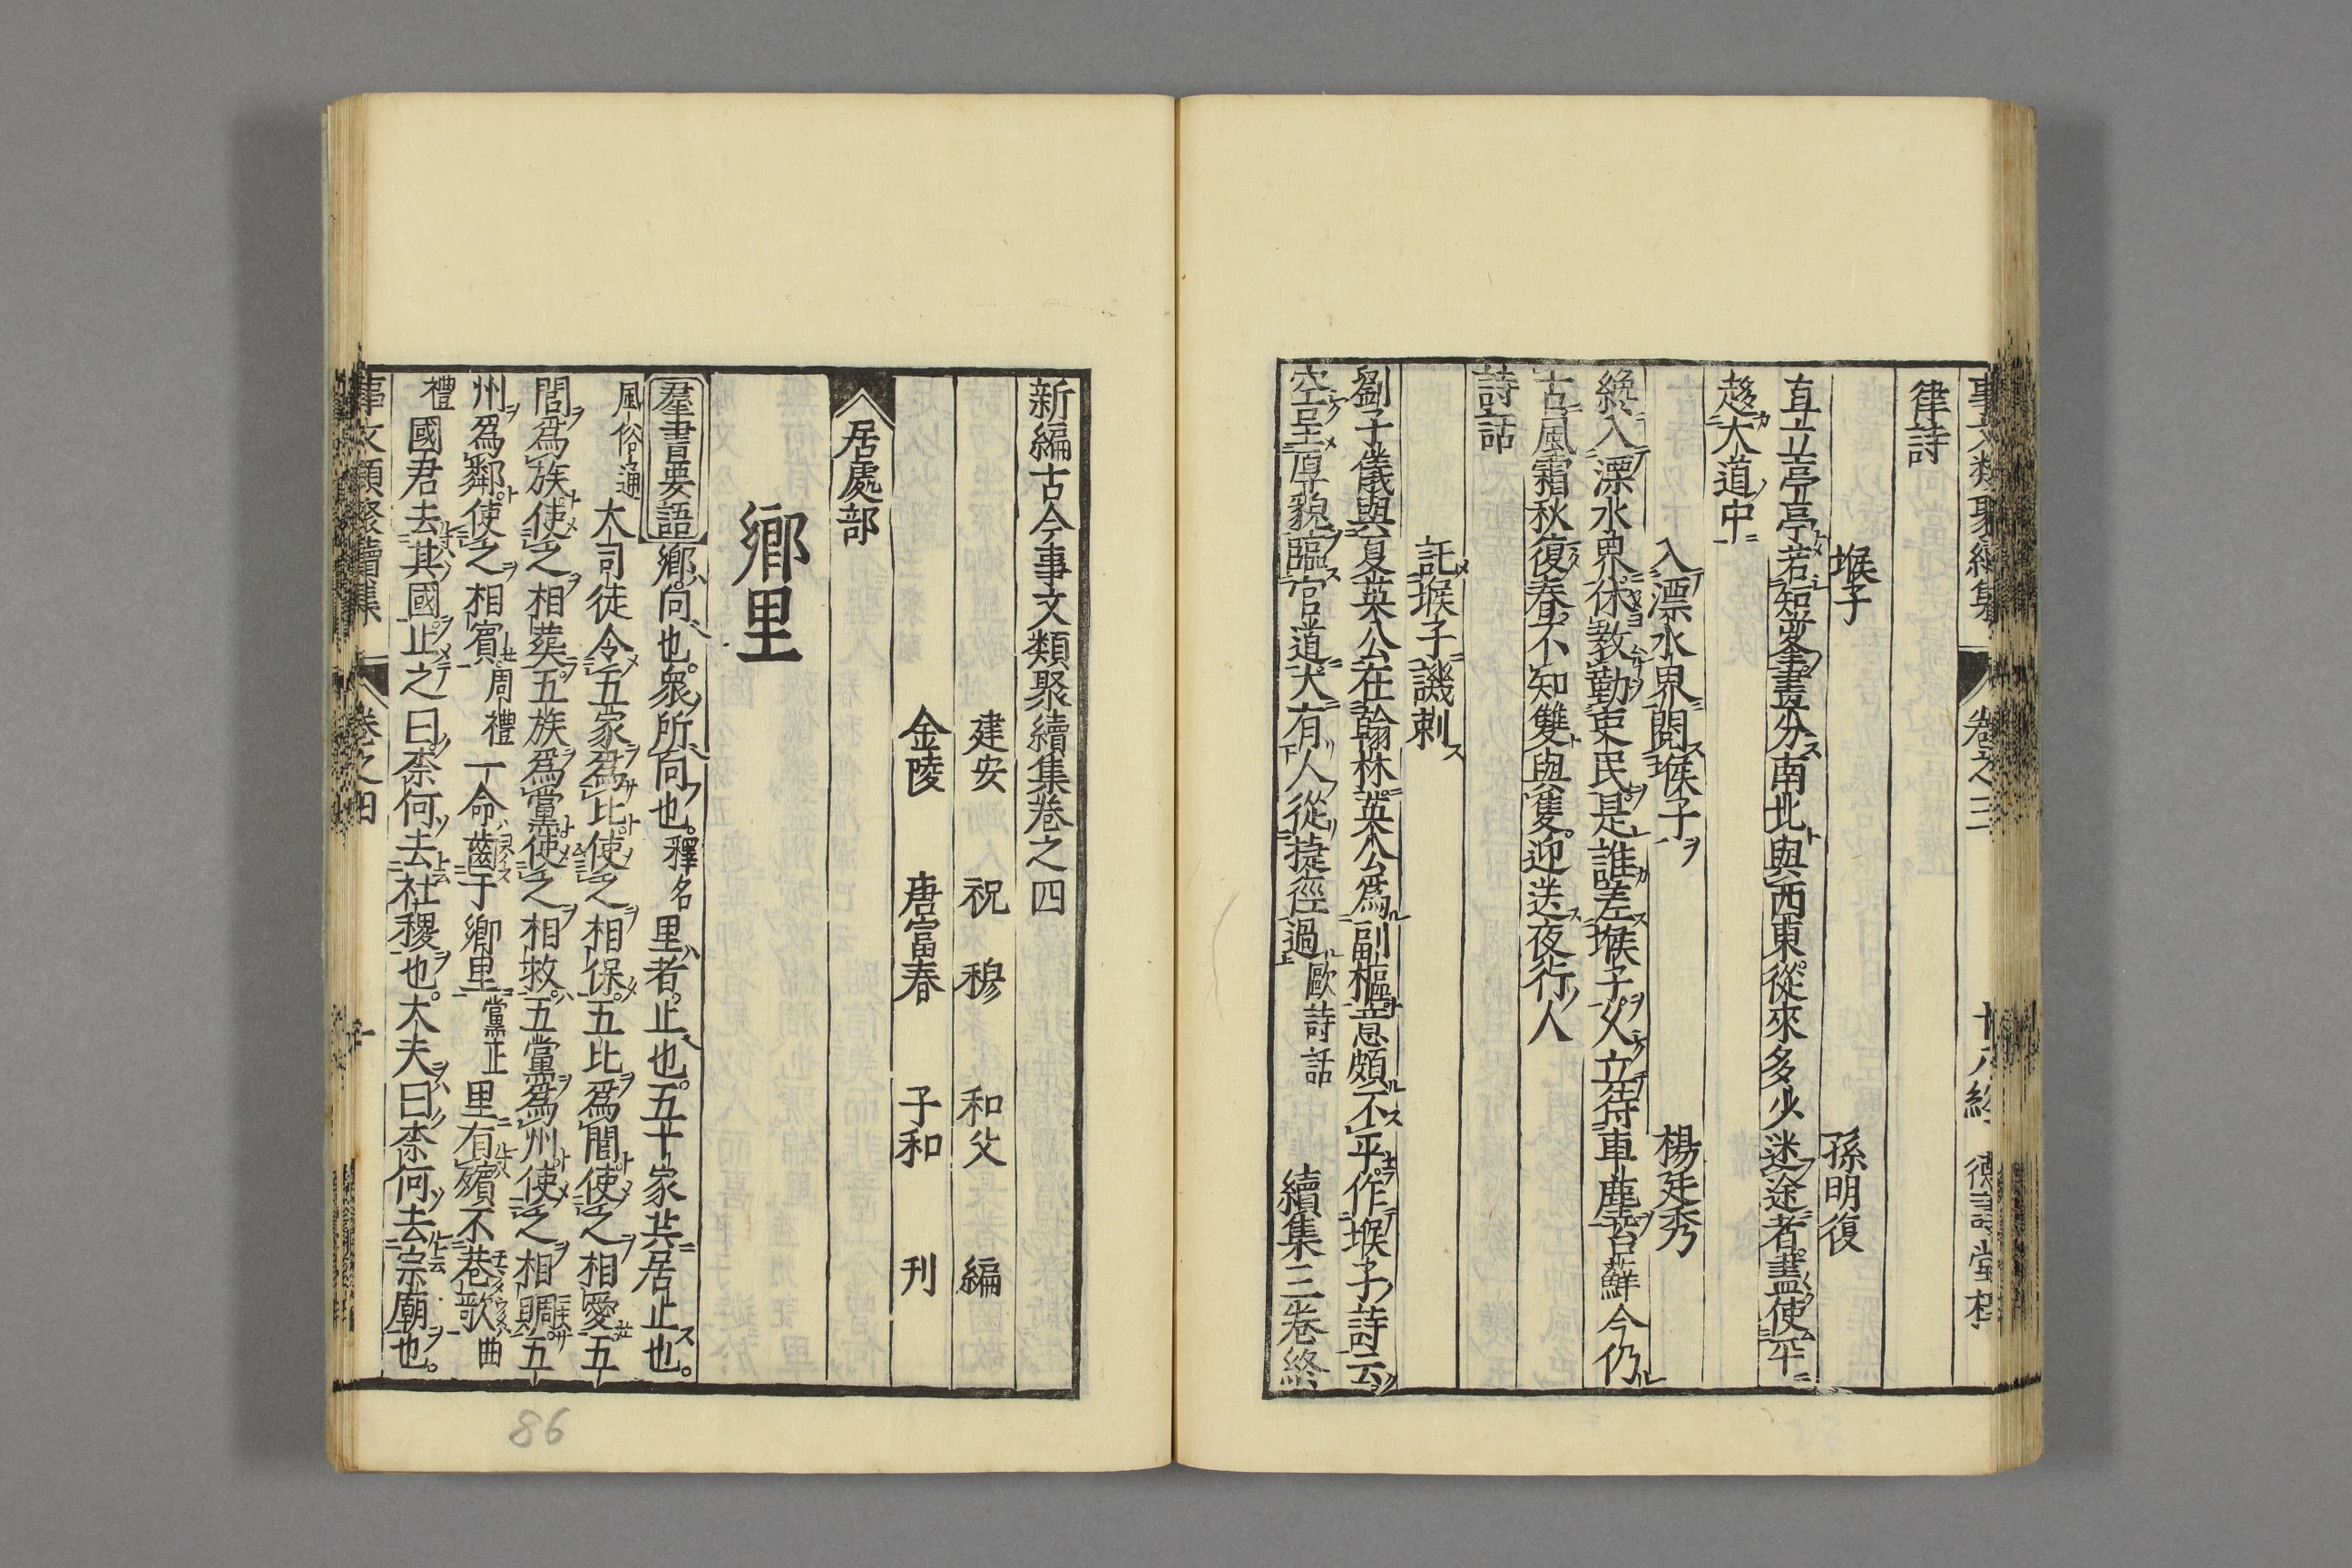 律詩
堠子 孫明復
直立亭亭若短峯書分南北與西東從來多少迷途者盡使平
趍大道中
入漂水界閱堠子 楊廷秀
纔入溧水界休教勤吏民是誰差堠子父立待車塵苔蘚今仍
古風霜秋復春不知雙與隻迎送夜行人
詩話
託堠子譏刺
劉子儀與夏英公在翰林英公爲副樞意頗不平作堠子詩云
空呈厚貌臨官道大有人從捷徑過 歐詩話 續集三卷終
新編古今事文類聚續集卷之四
建安 祝 穆 和父 編
金陵 唐富春 子和 刊
居處部
鄉里
羣書要語 鄉向也衆所向也 釋名 里者止也五十家共居止也
風俗通 大司徒令五家爲比使之相保五比爲閭使之相愛五
閭爲族使之相葬五族爲黨使之相救五黨爲州使之相賙五
州爲鄉使之相賓 周禮 一命齒于鄉里 黨正 里有殯不巷歌 曲
禮 國君去其國止之曰柰何去社稷也大夫曰柰何去宗廟也
事文類聚續集 卷之四